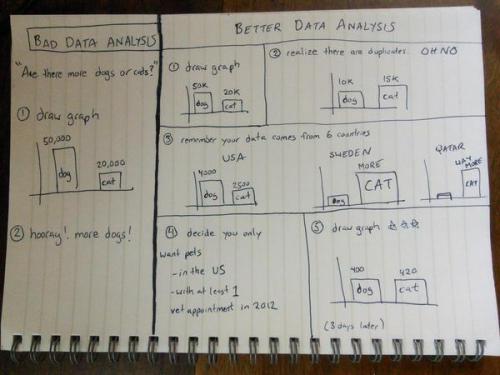 BAD DATA ANALYSIS
"Are there more dogs or cats?"
① draw graph
50,000
dog
20,000
cat
② hooray! more dogs!
BETTER DATA ANALYSIS
① draw graph
50K
dog
20K
cat
② realize there are duplicates. OH NO
10K
dog
15K
cat
③ remember your data comes from 6 countries
USA
4000
dog
2500
cat
SWEDEN
dog
MORE
CAT
QATAR
WAY MORE
CAT
④ decide you only
want pets
-in the US
-with at least 1
vet appointment in 2012
⑤ draw graph ☆☆☆
400
dog
420
cat
(3 days later)